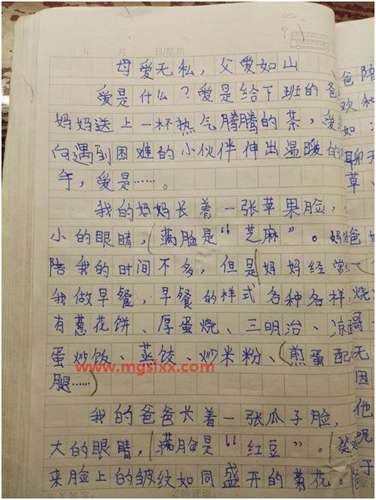 母爱无私，父爱如山
爱是什么？爱是给下班的爸
妈妈送上一杯热气腾腾的茶，爱
向遇到困难的小伙伴伸出温暖的
手，爱是……。
我的妈妈长着一张苹果脸，
小的眼睛，（满脸是“芝麻”。妈
陪我的时间不多，但是（妈妈经常
我做早餐，早餐的样式各种各样，
有葱花饼、厚蛋烧、三明治、
蛋炒饭、蒸饺、炒米粉、（煎蛋配
腿……）
www.mgslxx.com
我的爸爸长着一张瓜子脸，
大的眼睛，（满脸是“红豆”。（
来脸上的皱纹如同盛开的菊花。